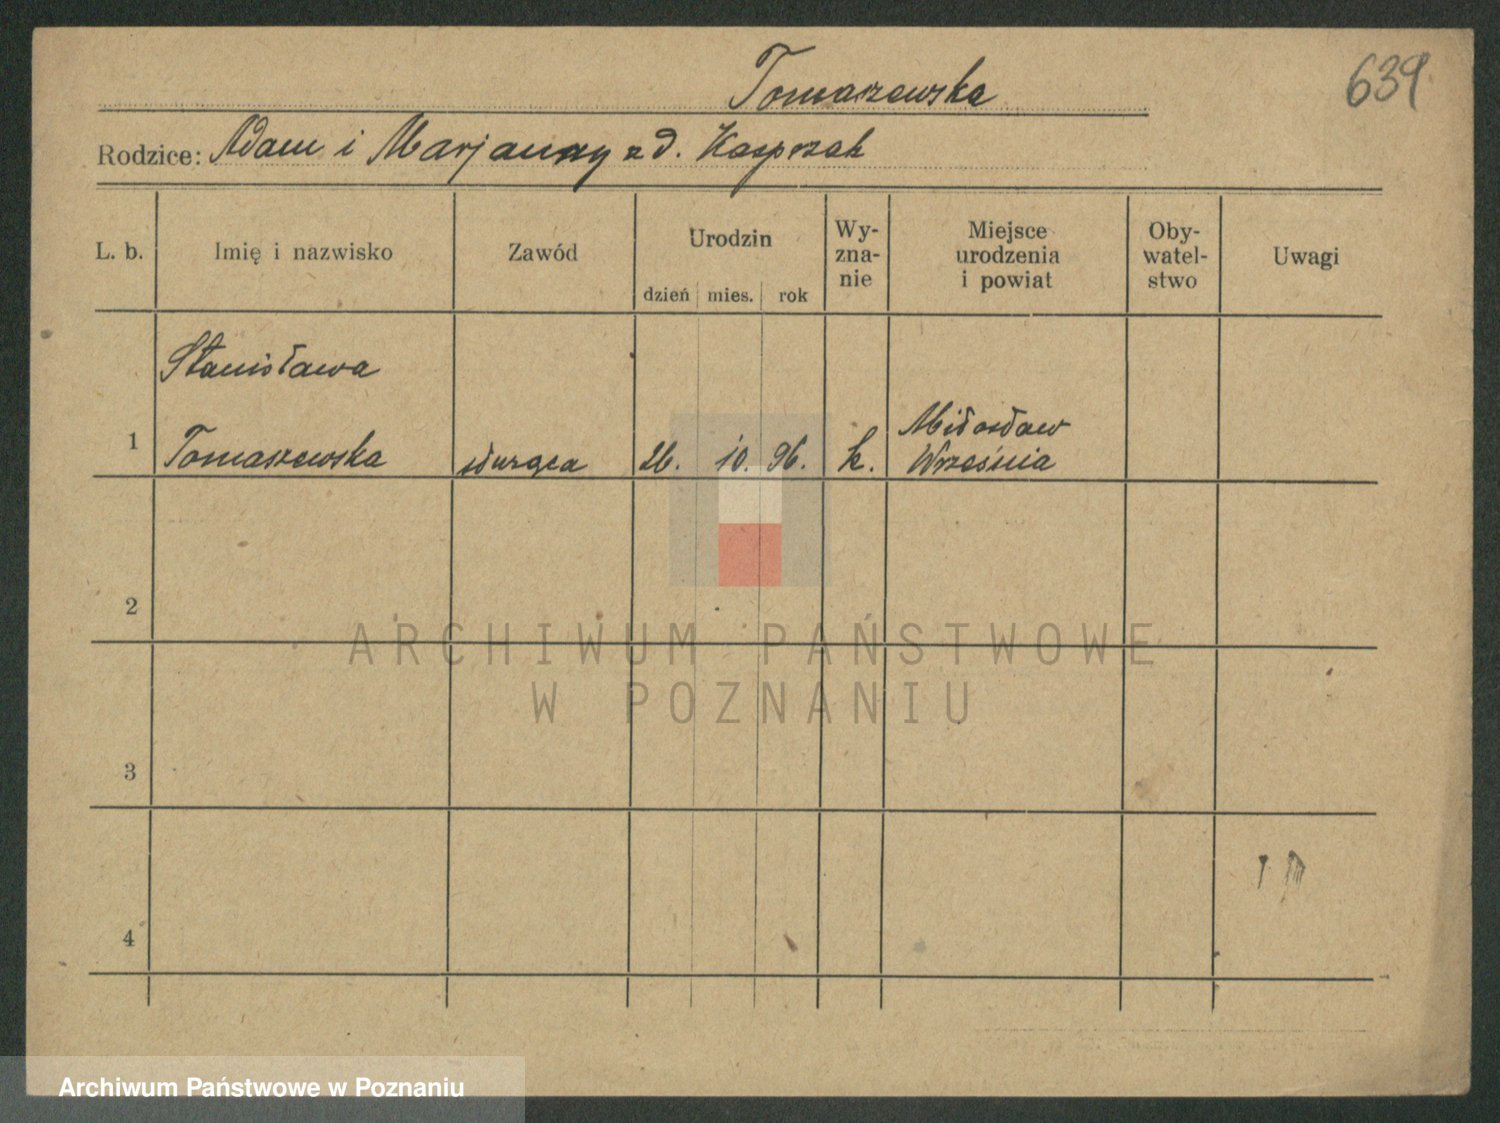 Tomaszewska
639
Rodzice: Adam i Marjanny z d. Kasprzak
L. b. Imię i nazwisko Zawód Urodzin dzień mies. rok Wy-zna-nie Miejsce urodzenia i powiat Oby-watel-stwo Uwagi
Stanisława
1 Tomaszewska służąca 26. 10. 96. k. Miłosław
Września
2
3
4
ARCHIWUM PAŃSTWOWE
W POZNANIU
Archiwum Państwowe w Poznaniu